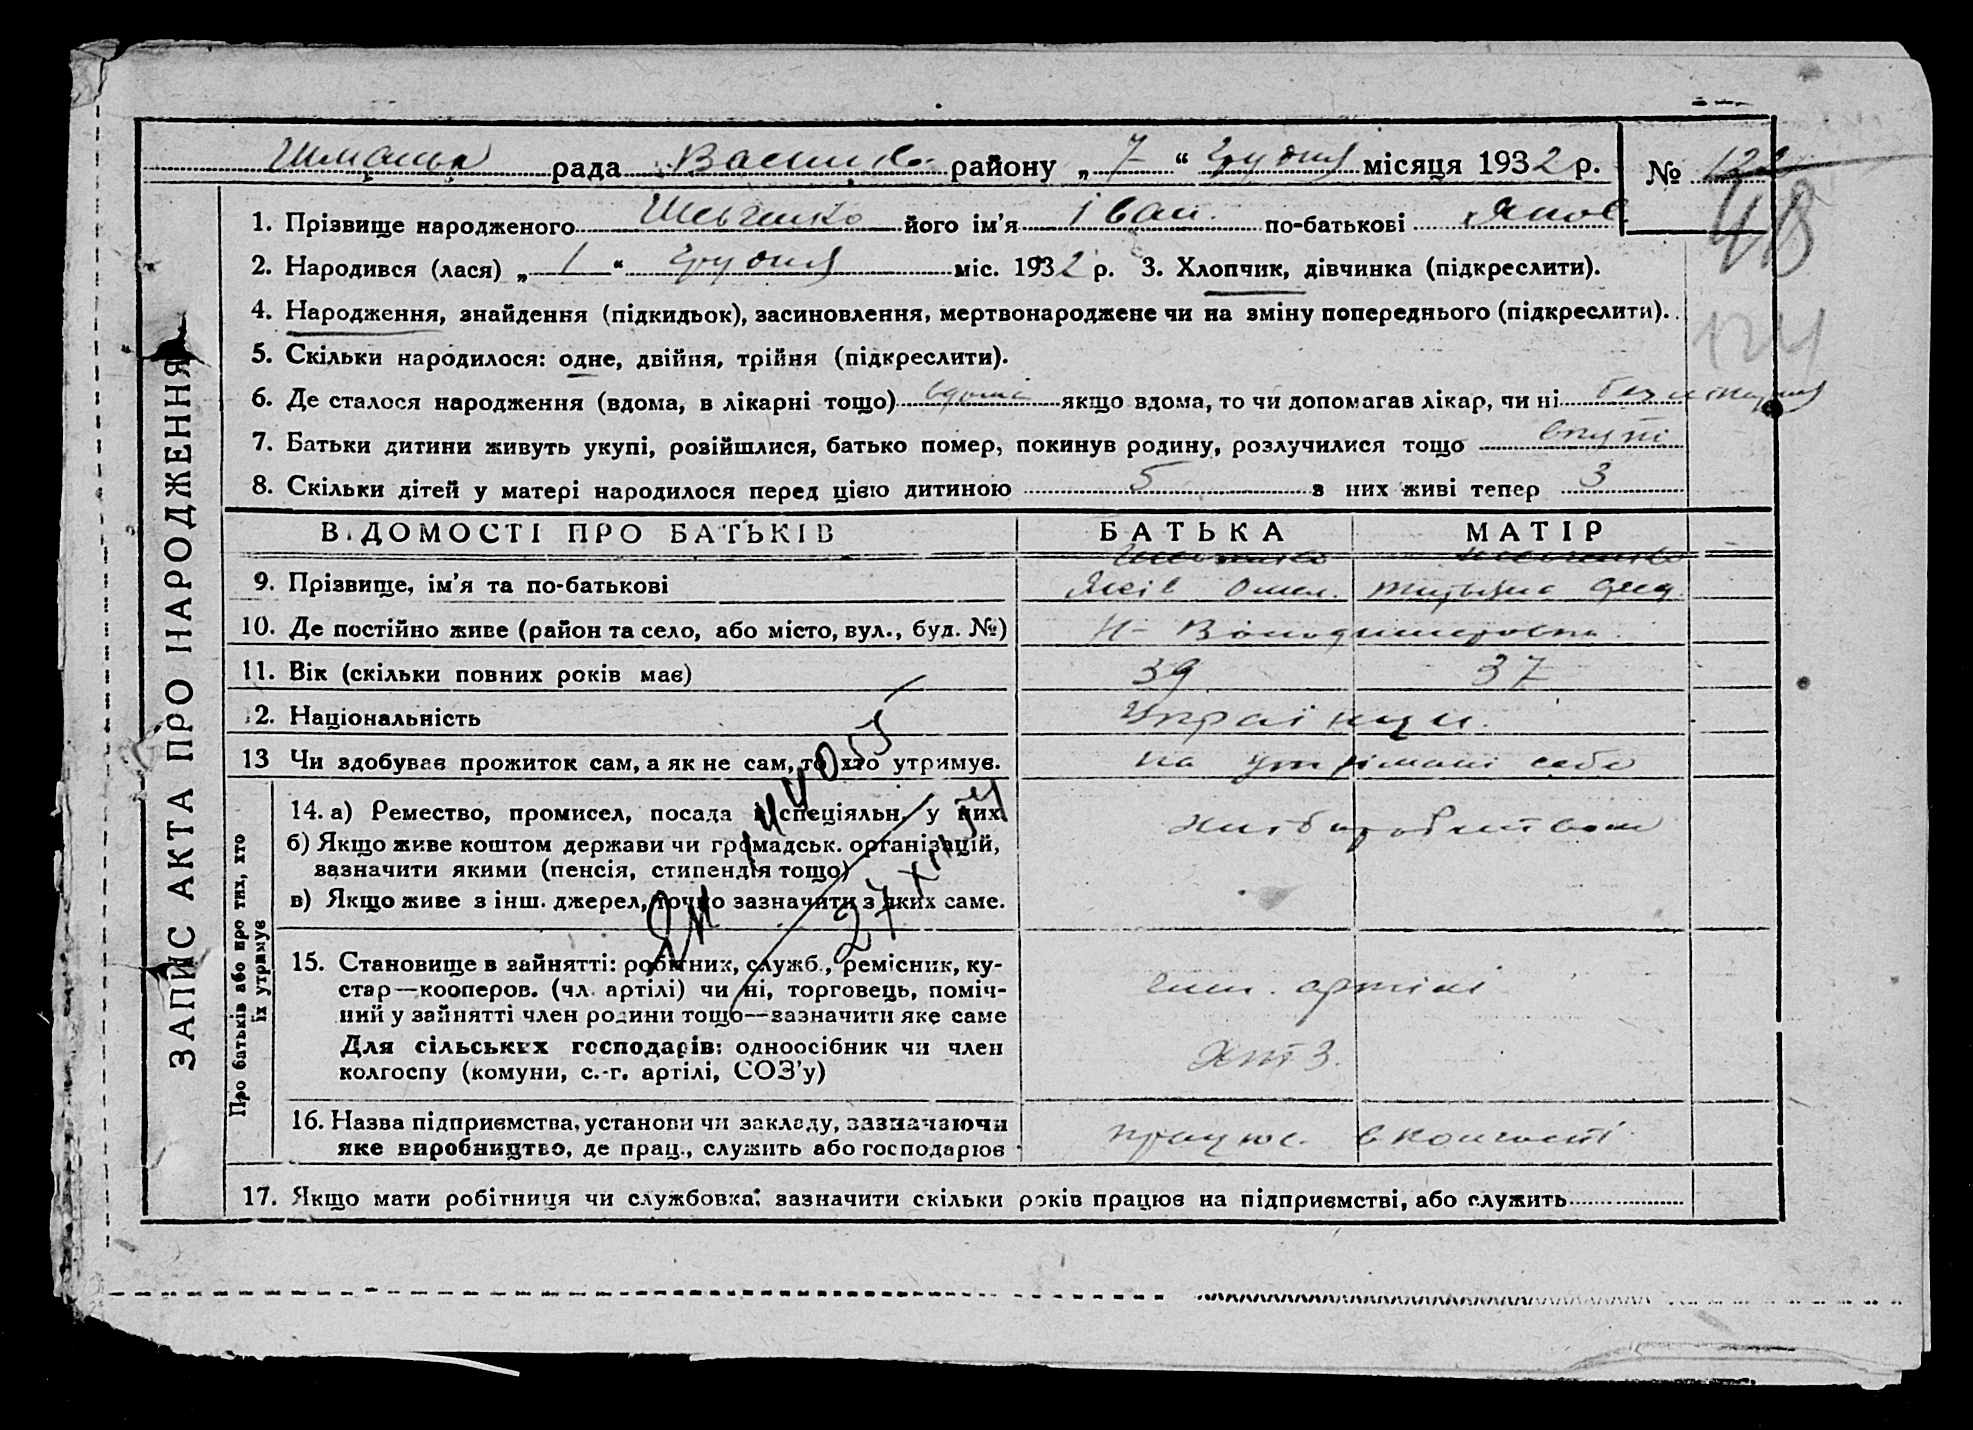 рада Васильк. району „ 7 “ грудня місяця 1932 р. №
1. Прізвище народженого Шевченко його ім’я Іван. по-батькові Яков.
48
2. Народився (лася) „ 1 “ грудня міс. 1932 р. 3. Хлопчик, дівчинка (підкреслити).
4. Народження, знайдення (підкидьок), засиновлення, мертвонароджене чи на зміну попереднього (підкреслити).
124
5. Скільки народилося: одне, двійня, трійня (підкреслити).
6. Де сталося народження (вдома, в лікарні тощо) вдома якщо вдома, то чи допомагав лікар, чи ні без лікаря
7. Батьки дитини живуть укупі, розійшлися, батько помер, покинув родину, розлучилися тощо вкупі
8. Скільки дітей у матері народилося перед цією дитиною 5 з них живі тепер 3
ЗАПИС АКТА ПРО НАРОДЖЕННЯ
ВІДОМОСТІ ПРО БАТЬКІВ БАТЬКА МАТІР
Шевченко Шевченко
9. Прізвище, ім’я та по-батькові Яків Омел. Титьяна
10. Де постійно живе (район та село, або місто, вул., буд. №) Н-Володимеровка
11. Вік (скільки повних років має) 39 37
12. Національність Українци.
13 Чи здобував прожиток сам, а як не сам, то хто утримує. на утрімані себе
Про батьків або про тих, хто
їх утримує
14. а) Ремество, промисел, посада і спеціяльн. у них.
хліборобством
б) Якщо живе коштом держави чи громадськ. організацій,
зазначити якими (пенсія, стипендія тощо)
в) Якщо живе з інш. джерел, точно зазначити з яких саме.
27 XII
15. Становище в зайнятті: робітник, служб., ремісник, ку-
стар—кооперов. (чл. артілі) чи ні, торговець, поміч-
член. артілі
ний у зайнятті член родини тощо—зазначити яке саме
Для сільських господарів: одноосібник чи член
колгоспу (комуни, с.-г. артілі, СОЗ’у)
ХПТЗ.
16. Назва підприємства, установи чи закладу, зазначаючи
яке виробництво, де прац., служить або господарює
працює. в колгоспі
17. Якщо мати робітниця чи службовка: зазначити скільки років працює на підприємстві, або служить